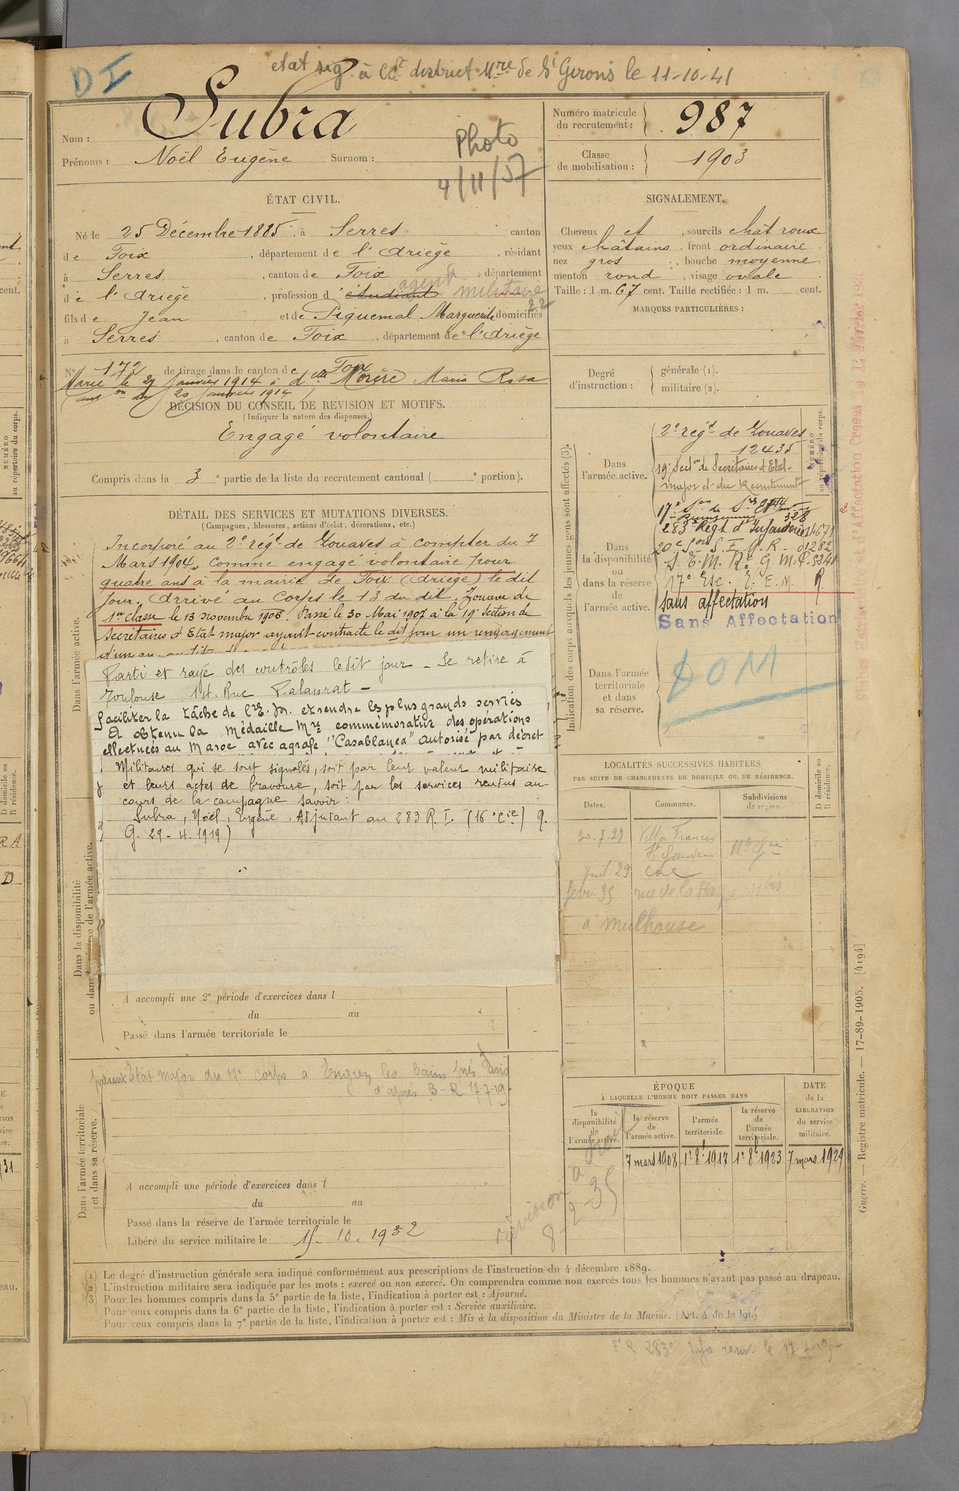 DI
etat sig. à Ct district Mre de St Girons le 11-10-41
Nom : Subra
Prénoms : Noël Eugène Surnom :
Photo
4/11/57
Numéro matricule du recrutement : 987
Classe de mobilisation : 1903
ÉTAT CIVIL.
Né le 25 Décembre 1885, à Serres canton
de Foix, département de l'Ariège, résidant
à Serres, canton de Foix, département
agent militaire
de l'Ariège, profession d'étudiant
22
fils de Jean et de Piquemal Marguerite domiciliés
à Serres, canton de Foix, département de l'Ariège
N° 172 de tirage dans le canton de Foix
Marié le 29 janvier 1914 à dlle Morère Maria Rosa
20 janvier 1914
DÉCISION DU CONSEIL DE REVISION ET MOTIFS.
(Indiquer la nature des dispenses.)
Engagé volontaire
Compris dans la 3e partie de la liste du recrutement cantonal ( e portion).
DÉTAIL DES SERVICES ET MUTATIONS DIVERSES.
(Campagnes, blessures, actions d'éclat, décorations, etc.)
Incorporé au 2e régt de Zouaves à compter du 7
Mars 1904, comme engagé volontaire pour
quatre ans à la mairie de Foix (Ariège) le dit
jour. Arrivé au Corps le 13 du dit. Zouave de
1re classe le 13 novembre 1906. Passé le 30 Mai 1907 à la 19e section de
Secrétaires d'Etat major ayant contracté le dit jour un rengagement
d'un an
Parti et rayé des contrôles ledit jour - Se retire à
Toulouse 14 Rue Palaprat -
faciliter la tâche de l'E.M. et rendre les plus grands services
A obtenu la Médaille Mre commémorative des opérations
effectuées au Maroc avec agrafe "Casablanca" autorisé par décret
Militaires qui se sont signalés, soit par leur valeur militaire
et leurs actes de bravoure, soit par les services rendus au
cours de la campagne savoir :
Subra, Noël, Eugène, Adjudant au 283 R.I. (16e Cie) Q.
G. 29-4-1919)
A accompli une 2e période d'exercices dans l
du au
Passé dans l'armée territoriale le
Etat Major du 12e corps à Enghien les Bains près Paris
d'après B-R 17-7-19.
A accompli une période d'exercices dans l
du au
Passé dans la réserve de l'armée territoriale le
Libéré du service militaire le 15-10-1932
Dans l'armée active.
Dans la disponibilité ou dans la réserve de l'armée active.
Dans l'armée territoriale et dans sa réserve.
SIGNALEMENT.
Cheveux et, sourcils chât roux
yeux châtains, front ordinaire
nez gros, bouche moyenne
menton rond, visage ovale
Taille : 1 m. 67 cent. Taille rectifiée : 1 m. cent.
MARQUES PARTICULIÈRES :
Degré d'instruction : générale (1).
militaire (2).
Indication des corps auxquels les jeunes gens sont affectés (3).
NUMÉRO au répertoire du corps.
Dans l'armée active.
2e régt de Zouaves
12435
19e Secton de Secrétaires d'Etat-
major et du Recrutement
Dans la disponibilité ou dans la réserve de l'armée active.
283e Régt d'Infanterie
S.E.M.R.
17e Esc. T.E.M. R.
Sans affectation
Sans Affectation
Dans l'armée territoriale et dans sa réserve.
DOM
LOCALITÉS SUCCESSIVES HABITÉES
PAR SUITE DE CHANGEMENTS DE DOMICILE OU DE RÉSIDENCE.
Dates. Communes. Subdivisions de région. D domicile ou R résidence.
30-7-29 Villa Francis
St Gaudens
Juil 29
fevr 35 rue de la
à Mulhouse
ÉPOQUE
À LAQUELLE L'HOMME DOIT PASSER DANS
DATE de la LIBÉRATION du service militaire.
la disponibilité de l'armée active. la réserve de l'armée active. l'armée territoriale. la réserve de l'armée territoriale.
7 mars 1908 1er 8bre 1917 1er 8bre 1923 7 mars 1929
révision à
8-2-35
(1) Le degré d'instruction générale sera indiqué conformément aux prescriptions de l'instruction du 4 décembre 1889.
(2) L'instruction militaire sera indiquée par les mots : exercé ou non exercé. On comprendra comme non exercés tous les hommes n'ayant pas passé au drapeau.
(3) Pour les hommes compris dans la 5e partie de la liste, l'indication à porter est : Ajourné.
Pour ceux compris dans la 6e partie de la liste, l'indication à porter est : Service auxiliaire.
Pour ceux compris dans la 7e partie de la liste, l'indication à porter est : Mis à la disposition du Ministre de la Marine. (Art. 4 de la loi)
Guerre. — Registre matricule. — 17-89-1905. [4194]